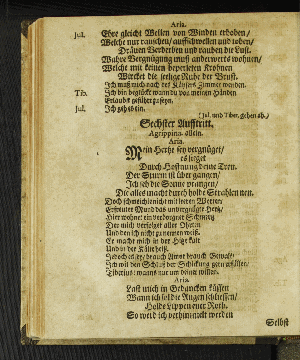 Aria.
Jul. Ehre gleicht Wellen von Winden erhaben/
Welche nur rauschen/ auffschwellen und toben/
Dräuen Verderben und rauben die Lust.
Wahre Vergnügung muß anderwerts wohnen/
Welche mit keinen beperleten Krohnen
Wircket die seelige Ruhe der Brust.
Ich muß nach des Käysers Zimmer wenden.
Tib. Ich bin beglückt wann du von meinen Händen
Erlaubst
Jul. Ich geh
(Jul. und Tiber. gehen ab.)
Sechster Aufftritt.
Agrippina. allein.
Aria.
Mein Hertze sey vergnüget/
es sieget
Durch Hoffnung deine Treu.
Der Sturm ist über gangen/
Ich seh die Sonne prangen/
Die alles macht durch holde Strahlen neu.
Doch schmeichle nicht mit leeren Worten
Mund das unvergnügte Hertz/
Hier wohnet ein verborgner Schmertz
Der mich verfolget aller Orten
Und den ich nicht zu nennen weiß.
Er macht mich in der Hitze kalt
Und in der Kälte heiß.
Jedoch
Ich wil den Schluß der Schickung gern
Tiberius:
Aria.
Last mich in Gedancken küssen
Wann ich sol die Augen schliessen/
Holde Lippen euer Roth.
So werd ich
Selbst